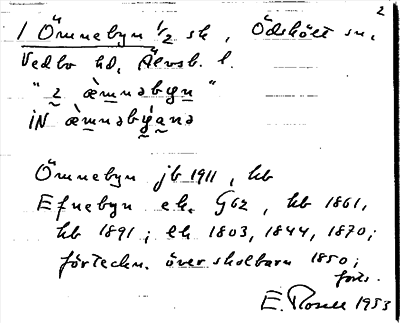 2
1 Ömnebyn 1/2 sk, Ödskölt sn,
Vedbo hd, Älvsb. l.
" 2 æ̀mnəbyn "
iN æ̀mnəbýanə
Ömnebyn jb 1911, kb
Efnebyn ek. G62, kb 1861,
hb 1891; lk 1803, 1844, 1870;
förteckn. över skolbarn 1850;
forts.
E. Rosell 1953